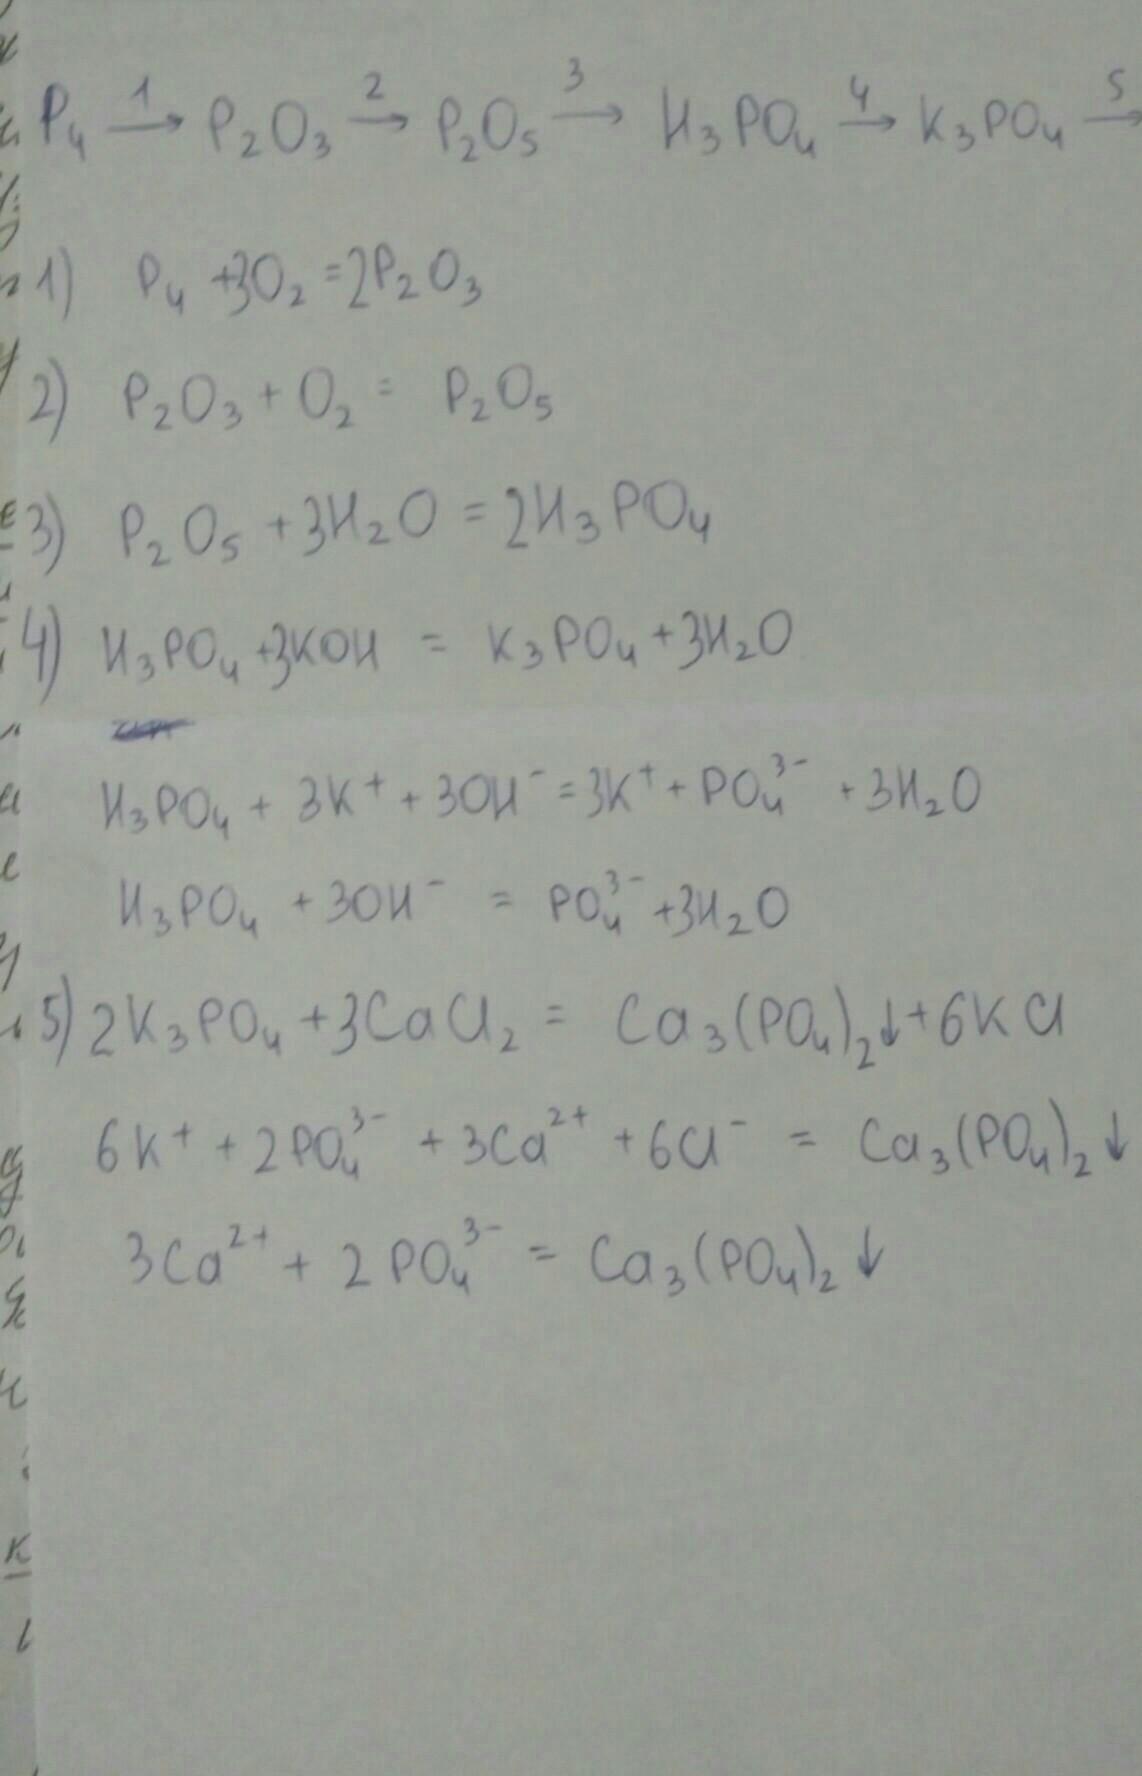 P₄ →¹ P₂O₃ →² P₂O₅ →³ H₃PO₄ →⁴ K₃PO₄ →⁵
1) P₄ +3O₂ =2P₂O₃
2) P₂O₃ + O₂ = P₂O₅
3) P₂O₅ +3H₂O = 2H₃PO₄
4) H₃PO₄ +3KOH = K₃PO₄ +3H₂O
H₃PO₄ + 3K⁺ + 3OH⁻ = 3K⁺ + PO₄³⁻ + 3H₂O
H₃PO₄ + 3OH⁻ = PO₄³⁻ +3H₂O
5) 2K₃PO₄ +3CaCl₂ = Ca₃(PO₄)₂↓ +6KCl
6K⁺ + 2PO₄³⁻ + 3Ca²⁺ + 6Cl⁻ = Ca₃(PO₄)₂↓
3Ca²⁺ + 2PO₄³⁻ = Ca₃(PO₄)₂↓